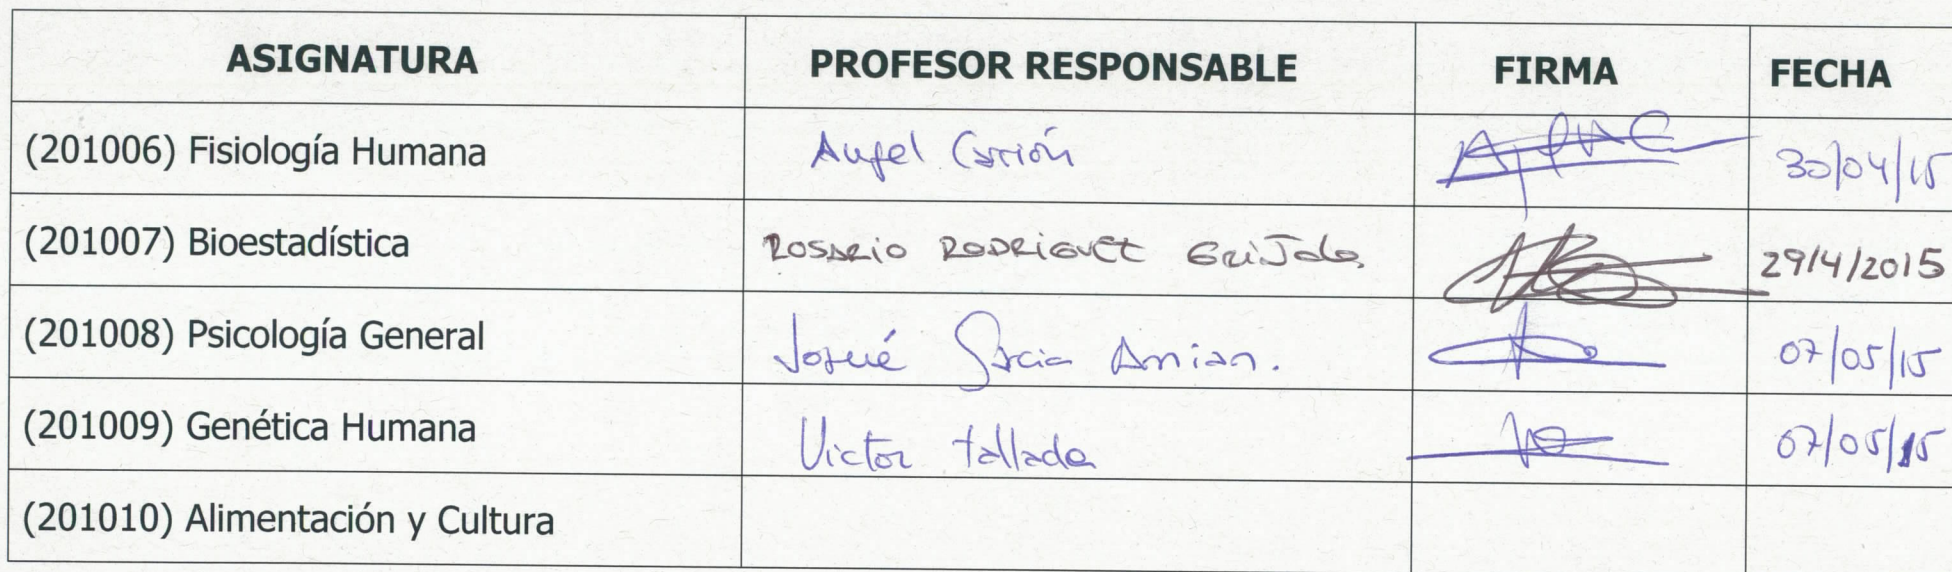 ASIGNATURA PROFESOR RESPONSABLE FIRMA FECHA
(201006) Fisiología Humana Angel Carrión 30/04/15
(201007) Bioestadística ROSARIO RODRIGUEZ GRIJALBA 29/4/2015
(201008) Psicología General Josué García Amian. 07/05/15
(201009) Genética Humana Victor Tallada 07/05/15
(201010) Alimentación y Cultura